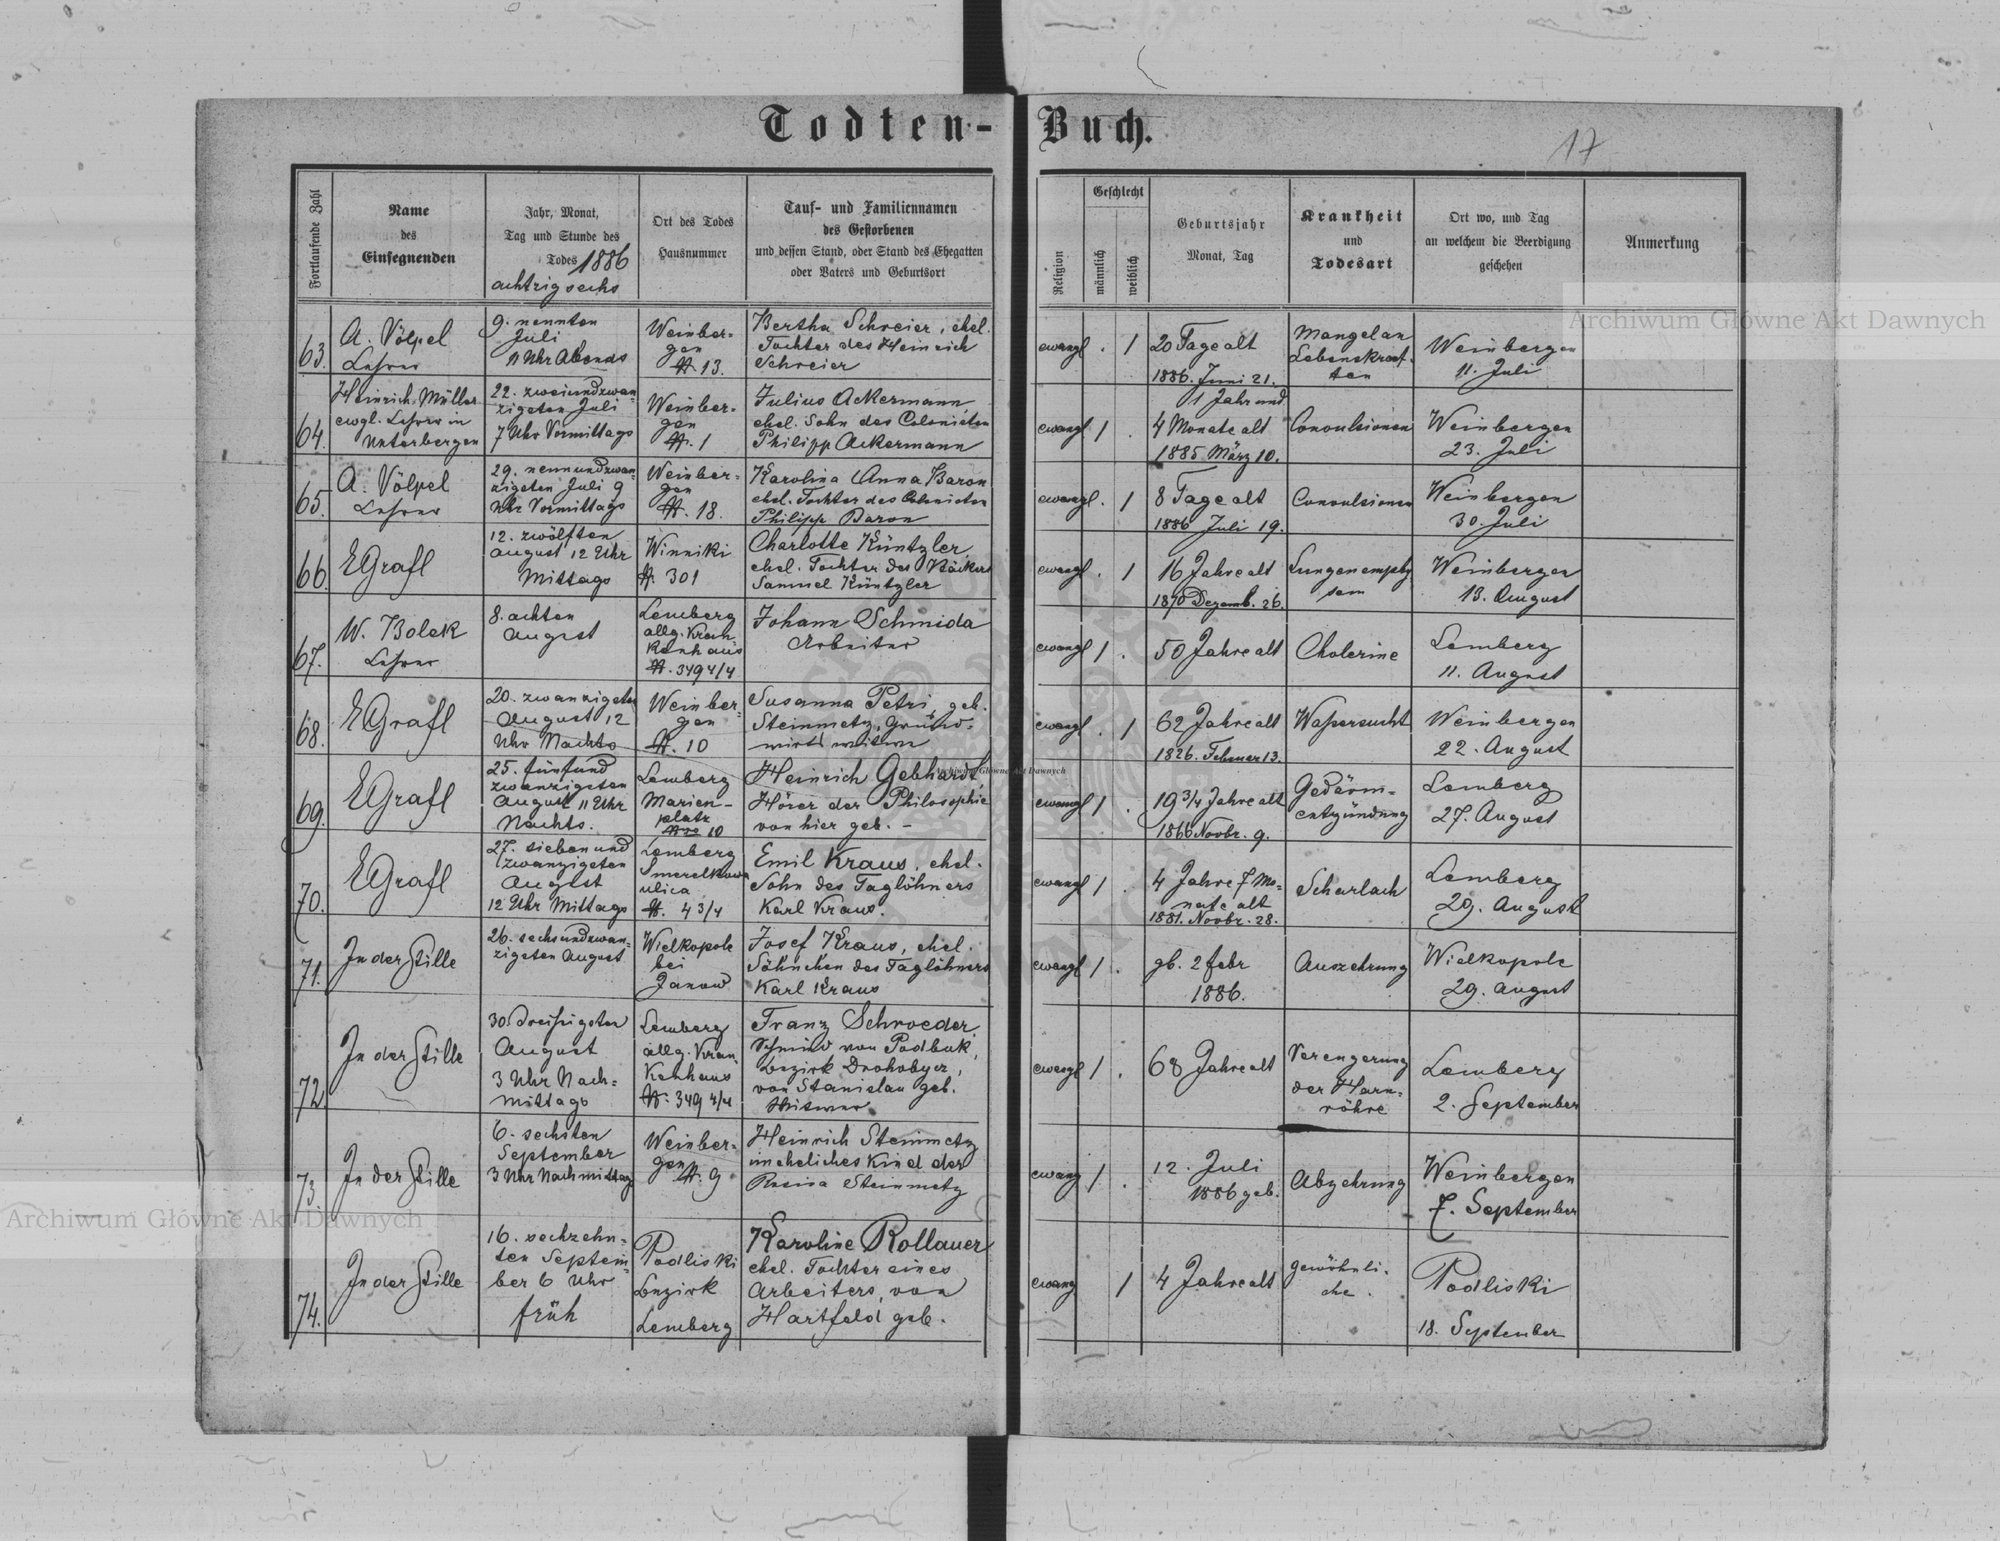 Todten-Buch.
17
Fortlaufende Zahl
Name
des
Einsegnenden
Jahr, Monat,
Tag und Stunde des
Todes 1886
achtzigsechs
Ort des Todes
Hausnummer
Tauf- und Familiennamen
des Gestorbenen
und dessen Stand, oder Stand des Ehegatten
oder Vaters und Geburtsort
Religion
Geschlecht
männlich
weiblich
Geburtsjahr
Monat, Tag
Krankheit
und
Todesart
Ort wo, und Tag
an welchem die Beerdigung
geschehen
Anmerkung
63.
A. Völpel
Lehrer
9. neunten
Juli
11 Uhr Abends
Weinber-
gen
N. 13.
Bertha Schreier, ehel.
Tochter des Heinrich
Schreier
ewangl . 1
20 Tage alt
1886. Juni 21.
Mangel an
Lebenskräf-
ten
Weinbergen
11. Juli
64.
Heinrich Müller
ewgl. Lehrer in
Unterbergen
22. zweiundzwan-
zigsten Juli
7 Uhr Vormittags
Weinber-
gen
N. 1
Julius Ackermann
ehel. Sohn des Colonisten
Philipp Ackermann
ewangl 1 .
1 Jahr und
4 Monate alt
1885 März 10.
Convulsionen
Weinbergen
23. Juli
65.
A. Völpel
Lehrer
29. neunundzwan-
zigsten Juli 9
Uhr Vormittags
Weinber-
gen
N. 18.
Karolina Anna Baron
ehel. Tochter des Colonisten
Philipp Baron
ewangl . 1
8 Tage alt
1886 Juli 19.
Convulsionen
Weinbergen
30. Juli
66.
EGrafl
12. zwölften
August 12 Uhr
Mittags
Winniki
N. 301
Charlotte Küntzler,
ehel. Tochter des Bäckers
Samuel Küntzler
ewangl . 1
16 Jahre alt
1870 Dezemb. 26.
Lungenemphy
sem
Weinbergen
13. August
67.
W. Bolek
Lehrer
8. achten
August
Lemberg
allg. Kran-
kenhaus
N. 349 4/4
Johann Schmida
Arbeiter
ewangl 1 .
50 Jahre alt
Cholerine
Lemberg
11. August
68.
EGrafl
20. zwanzigsten
August 12
Uhr Nachts
Weinber-
gen
N. 10
Susanna Petri, geb.
Steinmetz, Grund-
wirts witwe
ewangl . 1
62 Jahre alt
1826. Februer 13.
Waßersucht
Weinbergen
22. August
69.
EGrafl
25. fünfund
zwanzigsten
August 11 Uhr
Nachts.
Lemberg
Marien-
platz
Nro 10
Heinrich Gebhardt
Hörer der Philosophie
von hier geb. -
ewangl 1 .
19 3/4 Jahre alt
1866 Novbr. 9.
Gedärm-
entzündung
Lemberg
27. August
70.
EGrafl
27. sieben und
zwanzigsten
August
12 Uhr Mittags
Lemberg
ulica
N. 4 3/4
Emil Kraus, ehel.
Sohn des Taglöhners
Karl Kraus.
ewangl 1 .
4 Jahre 7 Mo-
nate alt
1881. Novbr. 28.
Scharlach
Lemberg
29. August
71.
In der Stille
26. sechsundzwan-
zigsten August
Wielkopole
bei
Janow
Josef Kraus, ehel.
Söhnchen des Taglöhners
Karl Kraus
ewangl 1 .
gb. 2 febr
1886.
Auszehrung
Wielkopole
29. August
72.
In der Stille
30. dreißigsten
August
3 Uhr Nach-
mittags
Lemberg
allg. Kran
kenhaus
N. 349 4/4
Franz Schroeder,
Schmied von Podbuk,
Bezirk Drohobycz,
von Stanislau geb.
Witwer
ewangl 1 .
68 Jahre alt
Verengerung
der Harn-
röhre
Lemberg
2. September
73.
In der Stille
6. sechsten
September
3 Uhr Nachmittag
Weinber-
gen N. 9
Heinrich Steinmetz
uneheliches Kind der
Rosina Steinmetz
ewang 1 .
12. Juli
1886 geb.
Abzehrung
Weinbergen
7. September
74.
In der Stille
16. sechzehn-
ten Septem-
ber 6 Uhr
früh
Podliski
Bezirk
Lemberg
Karoline Rollauer
ehel. Tochter eines
Arbeiters, von
Hartfeld geb.
ewang 1
4 Jahre alt
gewöhnli-
che.
Podliski
18. September
Archiwum Główne Akt Dawnych
Archiwum Główne Akt Dawnych
Archiwum Główne Akt Dawnych